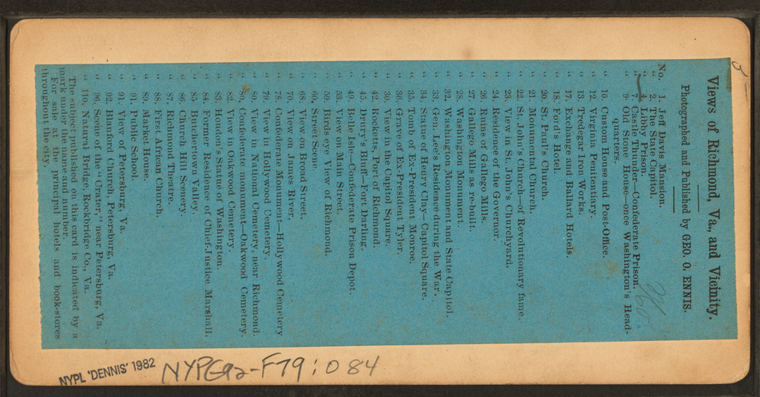 Views of Richmond, Va., and Vicinity.
Photographed and Published by GEO. O. ENNIS.
No. 1. Jeff Davis Mansion.
" 2. The State Capitol.
" 4. Libby Prison.
" Castle Thunder—Confederate Prison.
" 9. Old Stone House—once Washington's Head-
quarters.
" 10. Custom House and Post-Office.
" 12. Virginia Penitentiary.
" 13. Tredegar Iron Works.
" 17. Exchange and Ballard Hotels.
" 18. Ford's Hotel.
" 20. St. Paul's Church.
" 21. Monumental Church.
" 22. St. John's Church—of Revolutionary fame.
" 23. View in St. John's Churchyard.
" 24. Residence of the Governor.
" 26. Ruins of Gallego Mills.
" 27. Gallego Mills as re-built.
" 28. Washington Monument.
" 32. Washington Monument and State Capitol.
" 33. Gen. Lee's Residence during the War.
" 34. Statue of Henry Clay—Capitol Square.
" 35. Tomb of Ex-President Monroe.
" 36. Grave of Ex-President Tyler.
" 39. View in the Capitol Square.
" 42. Rocketts, Port of Richmond.
" Drewry's Bluff—Fort Darling.
" 49. Belle Isle—Confederate Prison Depot.
" View on Main Street.
" 59. Birds eye View of Richmond.
" 60. Street Scene.
" 68. View on Broad Street.
" 70. View on James River.
" 78. Confederate Monument—Hollywood Cemetery
" 79. Hollywood Cemetery.
" View in National Cemetery, near Richmond.
" Confederate monument—Oakwood Cemetery.
" 82. View in Oakwood Cemetery.
" 83. Houdon's Statue of Washington.
" 84. Former Residence of Chief-Justice Marshall.
" 85. Butchertown Valley.
" 86.
" 87. Richmond Theatre.
" 88. First African Church.
" 89. Market House.
" 91. Public School.
" 91. View of Petersburg, Va.
" 92. Blanford Church, Petersburg, Va.
" 96. Scene of the "Crater," near Petersburg, Va.
" 110. Natural Bridge, Rockbridge Co., Va.
The subject published on this card is indicated by a
mark under the name and number.
For sale at the principal hotels and book-stores
throughout the city.
NYPL "DENNIS" 1982
NYPG92-F79:084